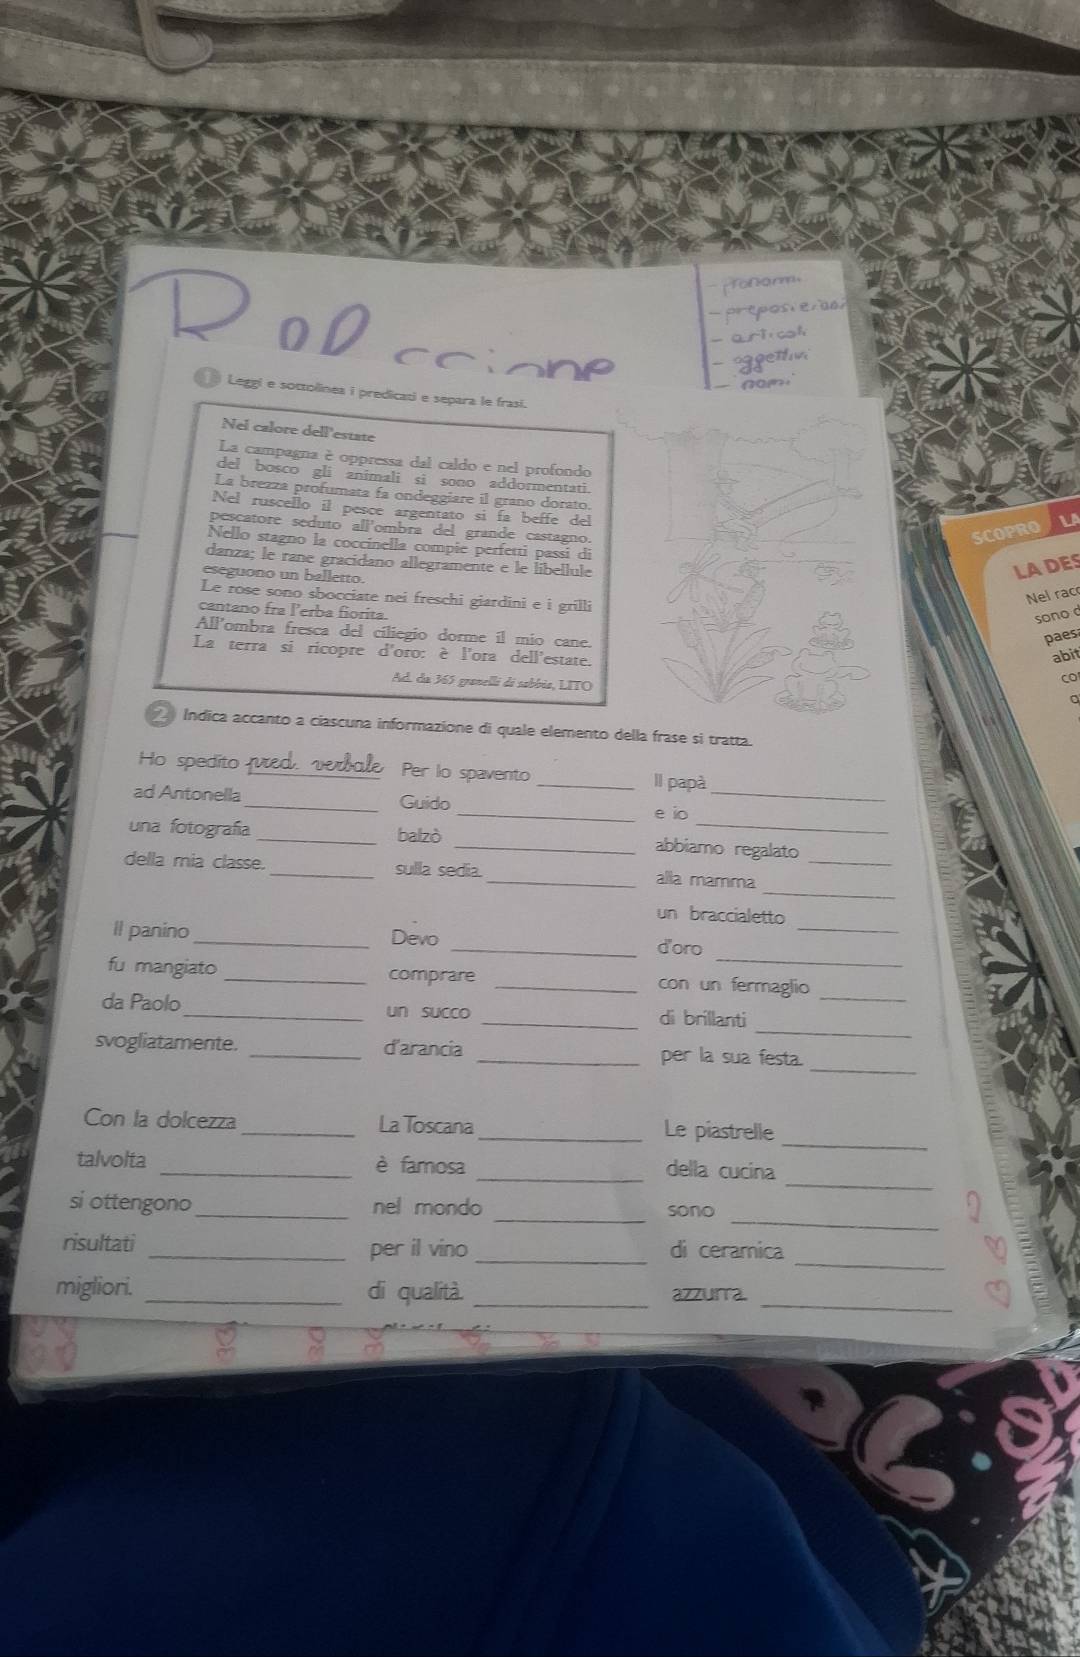 - pronomi
- preposizioni
- articoli
- aggettivi
- nomi
1 Leggi e sottolinea i predicati e separa le frasi.
Nel calore dell'estate
La campagna è oppressa dal caldo e nel profondo
del bosco gli animali si sono addormentati.
La brezza profumata fa ondeggiare il grano dorato.
Nel ruscello il pesce argentato si fa beffe del
pescatore seduto all'ombra del grande castagno.
Nello stagno la coccinella compie perfetti passi di
danza; le rane gracidano allegramente e le libellule
eseguono un balletto.
Le rose sono sbocciate nei freschi giardini e i grilli
cantano fra l'erba fiorita.
All'ombra fresca del ciliegio dorme il mio cane.
La terra si ricopre d'oro: è l'ora dell'estate.
Ad. da 365 granelli di sabbia, LITO
2 Indica accanto a ciascuna informazione di quale elemento della frase si tratta.
Ho spedito pred. verbale
ad Antonella
una fotografia
della mia classe.
Per lo spavento
Guido
balzò
sulla sedia.
Il papà
e io
abbiamo regalato
alla mamma
un braccialetto
d'oro
con un fermaglio
di brillanti
per la sua festa.
Il panino
fu mangiato
da Paolo
svogliatamente.
Devo
comprare
un succo
d'arancia
Con la dolcezza
talvolta
si ottengono
risultati
migliori.
La Toscana
è famosa
nel mondo
per il vino
di qualità.
Le piastrelle
della cucina
sono
di ceramica
azzurra.
SCOPRO LA
LA DES
Nel rac
sono d
paes
abit